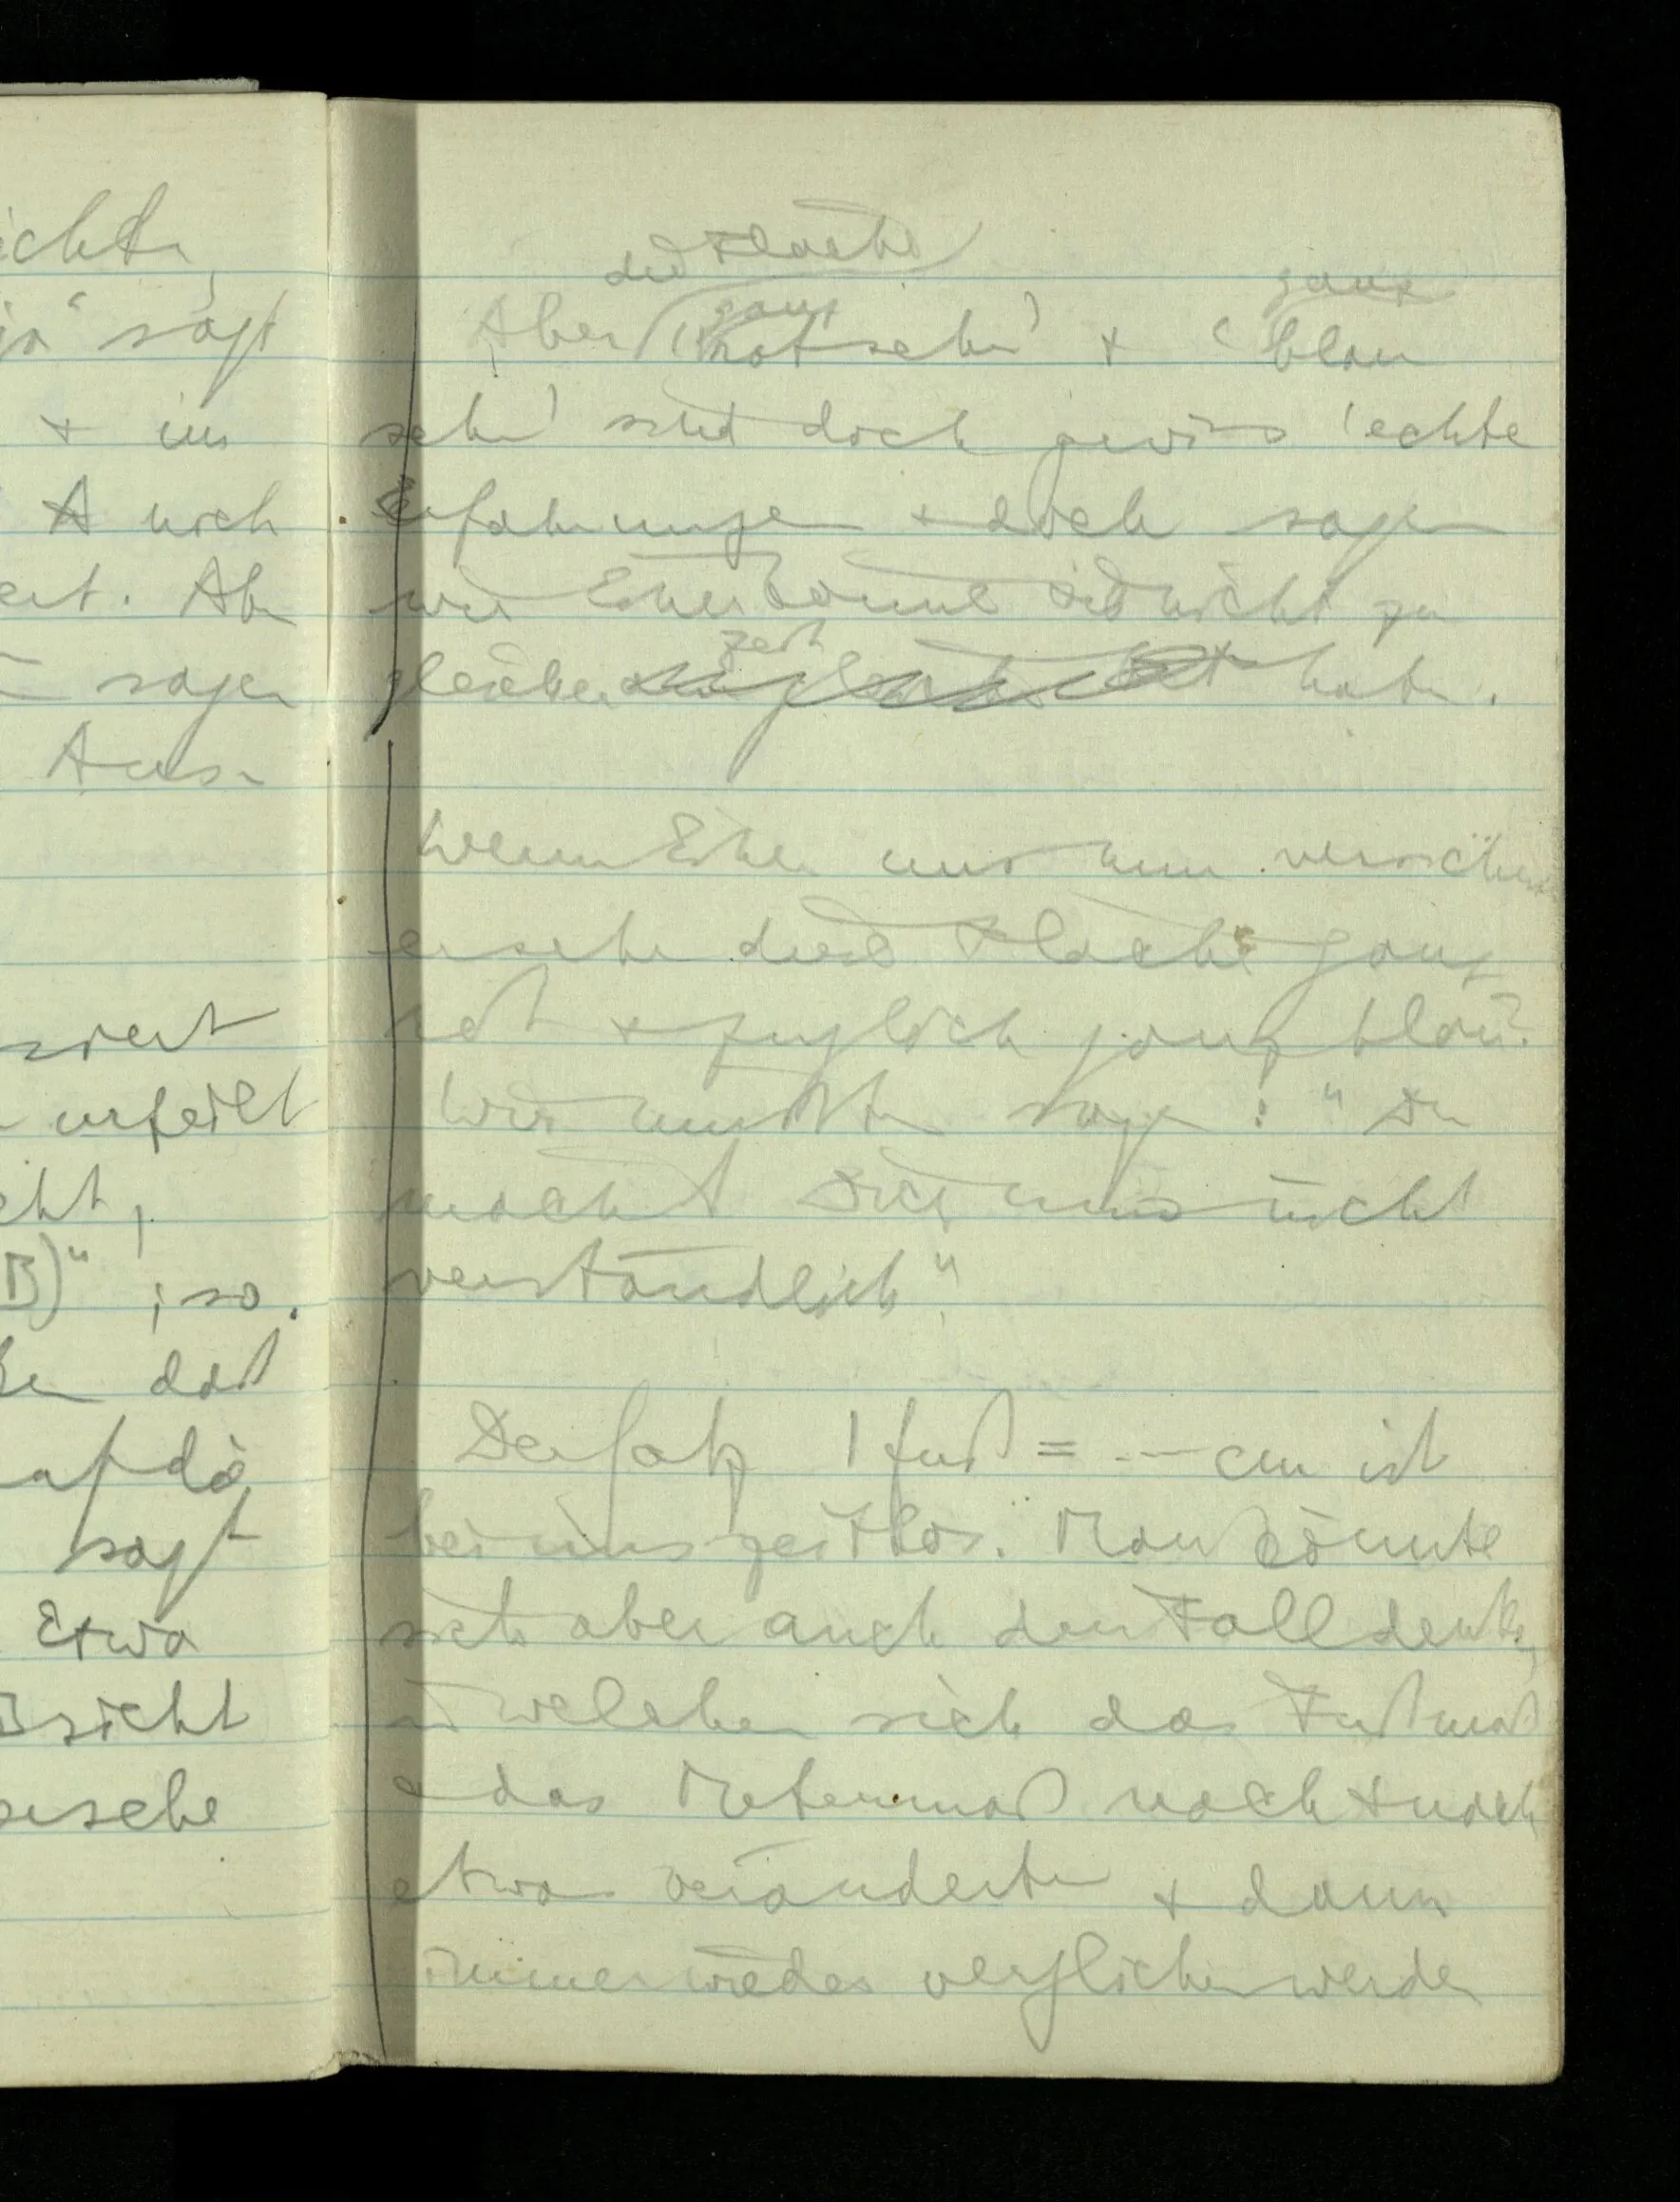 ichte,
ja" sagt
+ im
A nich
ert. Abe
sagen
Aus-
siert
urteilt
cht,
B)" ; so.
daß
auf die
sagt
Etwa
sicht
ersche
die Fläche
ganz ganz
Aber 'rot sehen' + 'blau
sehen' sind doch gewiss 'echte
Erfahrungen + doch sagen
wir Einer könne sie nicht zu
zeit
gleicher haben.
Wenn Einer uns nun versichert
er sehe diese Fläche ganz
rot + zugleich ganz blau?
Wir müßten sagen: "Du
machst Dich uns nicht
verständlich".
Der Satz 1 Fuß = --- cm ist
bei uns zeitlos. Man könnte
sich aber auch den Fall denken,
in welchem sich das Fußmaß
+ das Metermaß nach + nach
etwas veränderten + dann
immer wieder verglichen werden